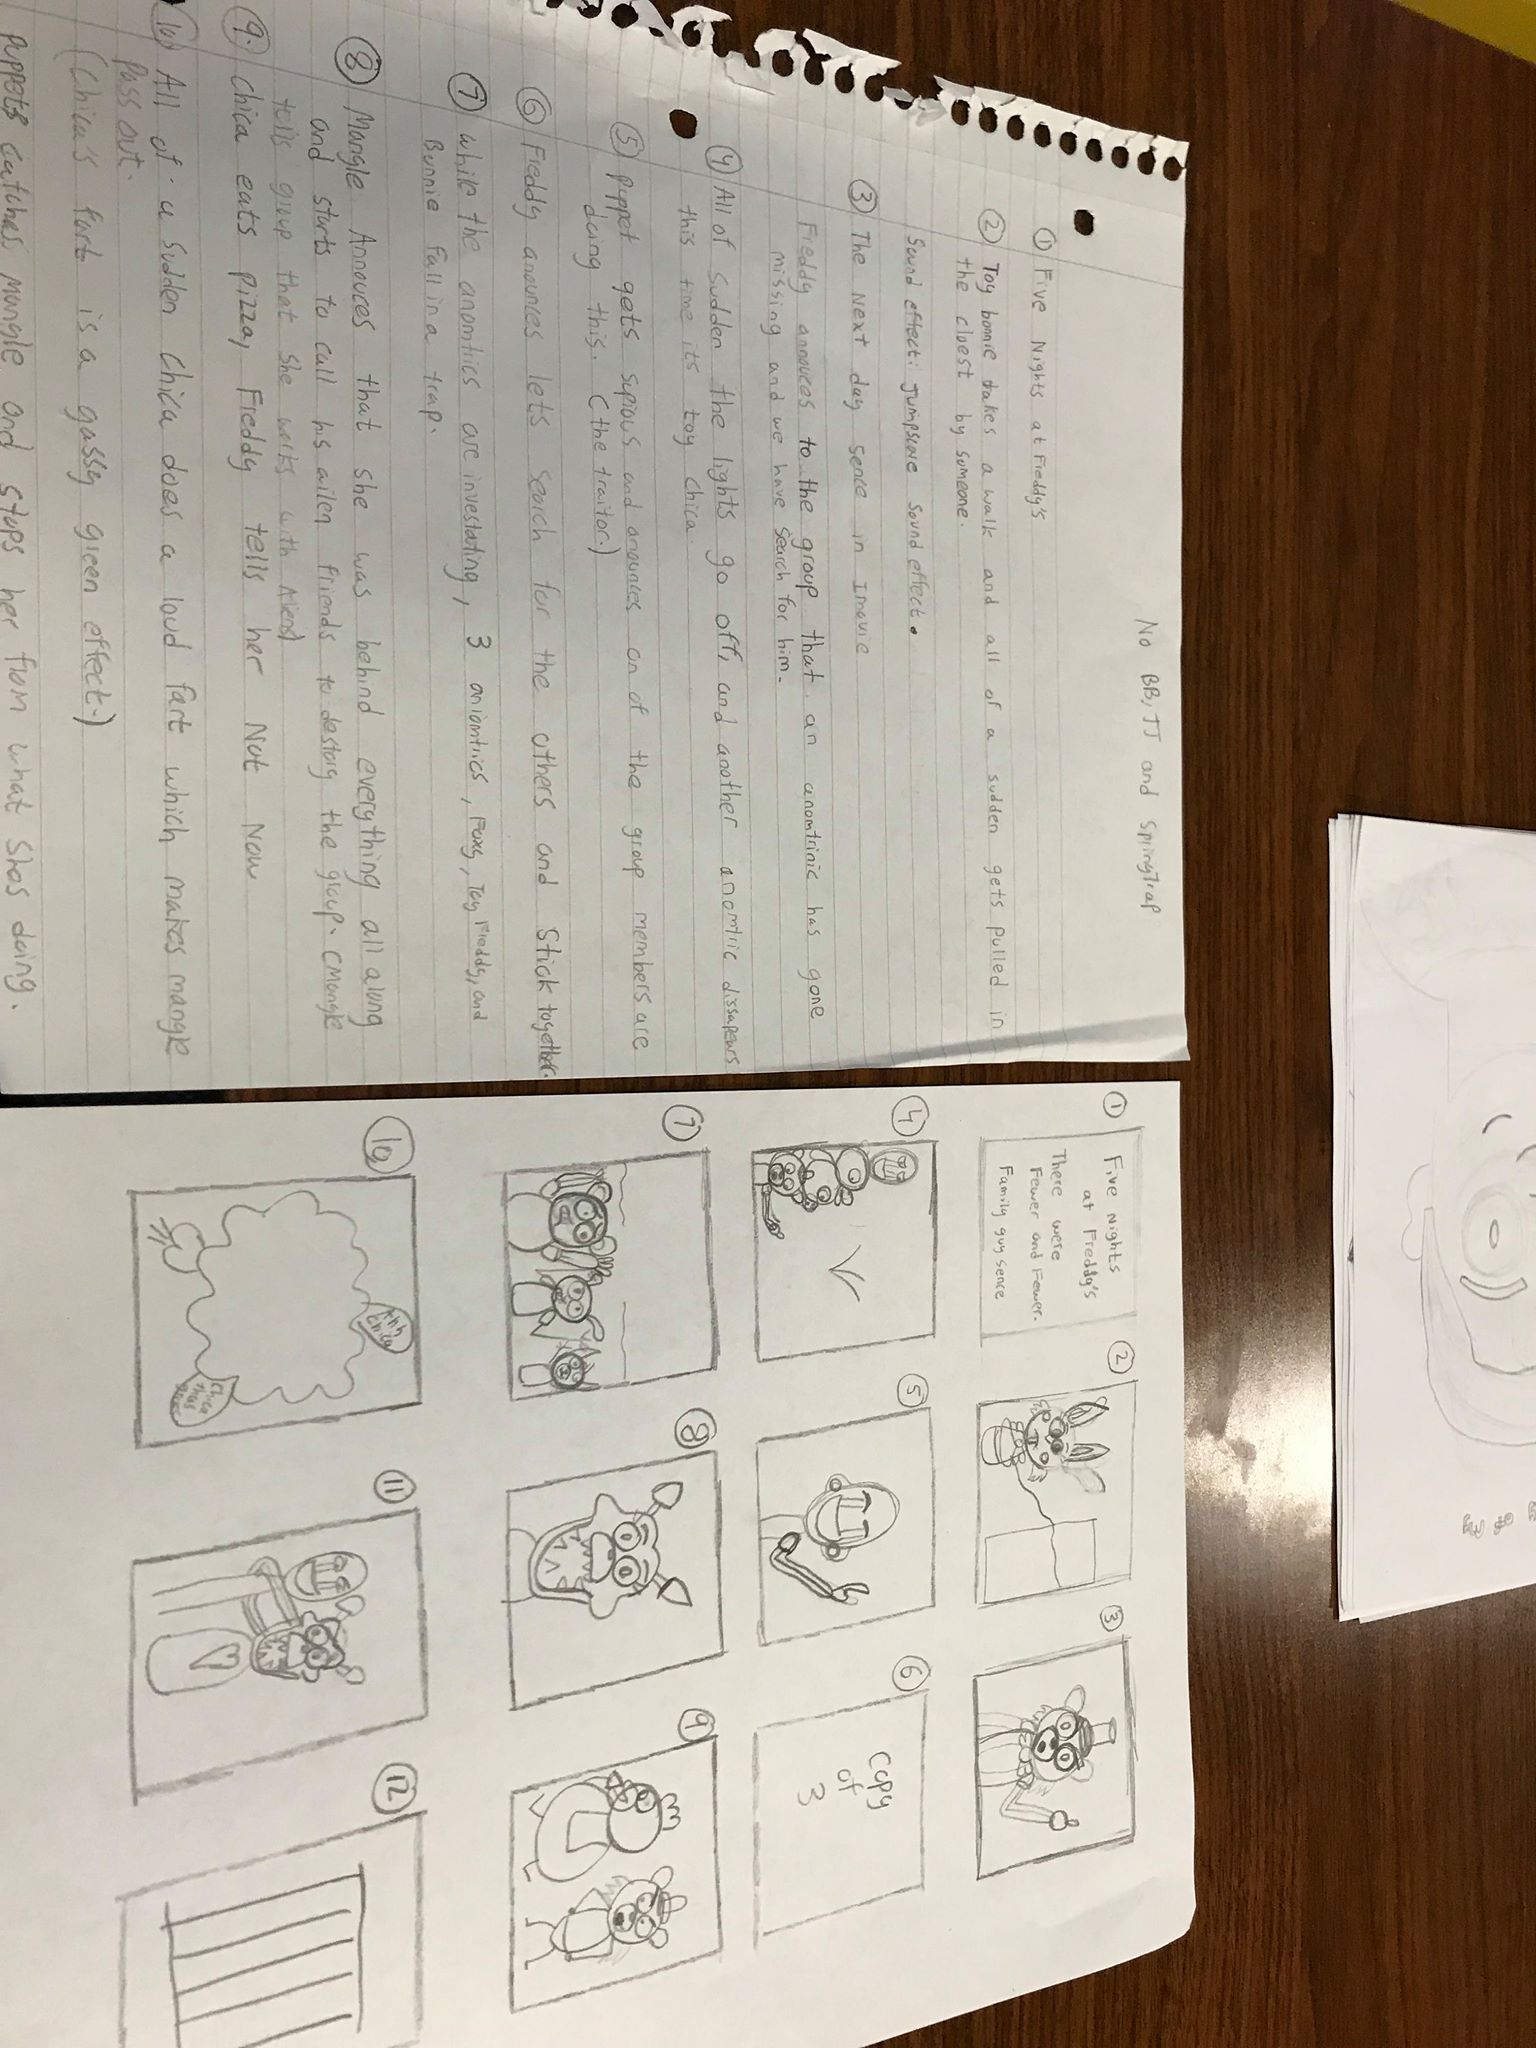 No BB, JJ and SpringTrap
① Five Nights at Freddy's
② Toy bonnie takes a walk and all of a sudden gets pulled in
the cloest by someone.
Sound effect: Jumpscare Sound effect.
③ The Next day sence in Imovie
Freddy annouces to the group that an anomtrinic has gone
missing and we have search for him.
④ All of Sudden the lights go off, and another anomtric dissapears
this time its toy chica.
⑤ Puppet gets supious and anounces on of the group members are
doing this. (the traitor.)
⑥ Freddy anounces lets search for the others and Stick together.
⑦ while the anomtrics are investating, 3 aniomtrics, Foxy, Toy Freddy, and
Bonnie fall in a trap.
⑧ Mangle Annouces that she was behind everything all along
and starts to call his ailen friends to destory the group. (Mangle
tells group that she works with Aliens)
⑨. Chica eats pizza, Freddy tells her Not Now
⑩ All of a sudden chica does a loud fart which makes mangle
Pass out.
(Chica's fart is a gassy green effect.)
Puppets catches mangle and stops her from what shes doing.
①
Five Nights
at Freddy's
There were
Fewer and Fewer.
Family guy sence
②
③
④
⑤
⑥
Copy
of
3
⑦
⑧
⑨
⑩
Ahh
Chica
Chica
⑪
⑫